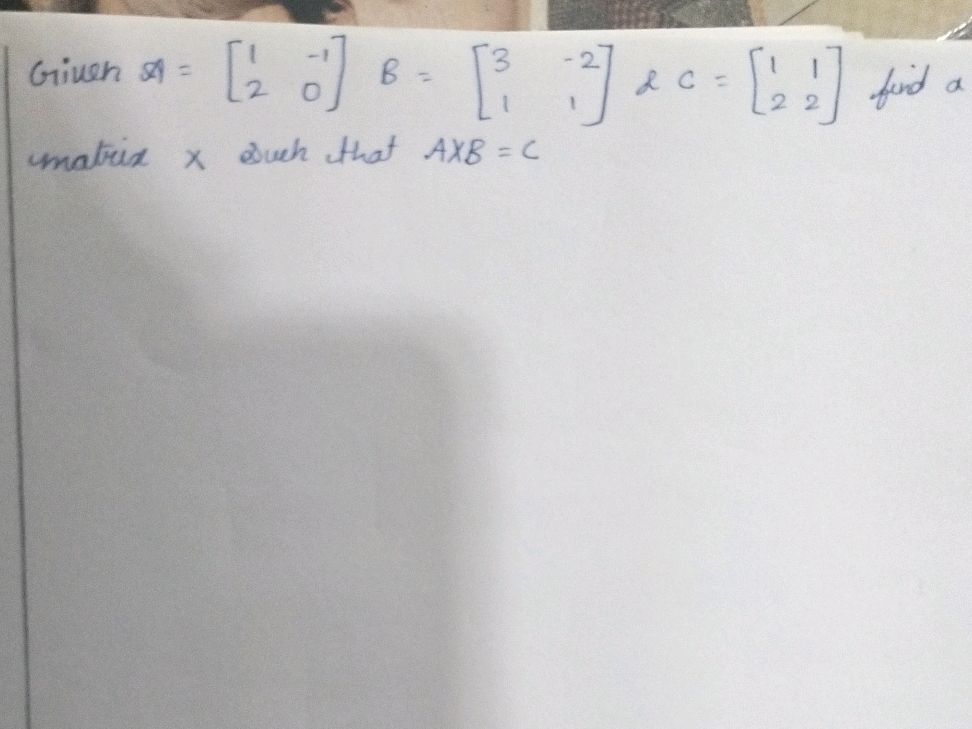 Given A = [1 -1 2 0] B = [3 -2 1 1] & C = [1 1 2 2] find a
matrix x such that AXB = C